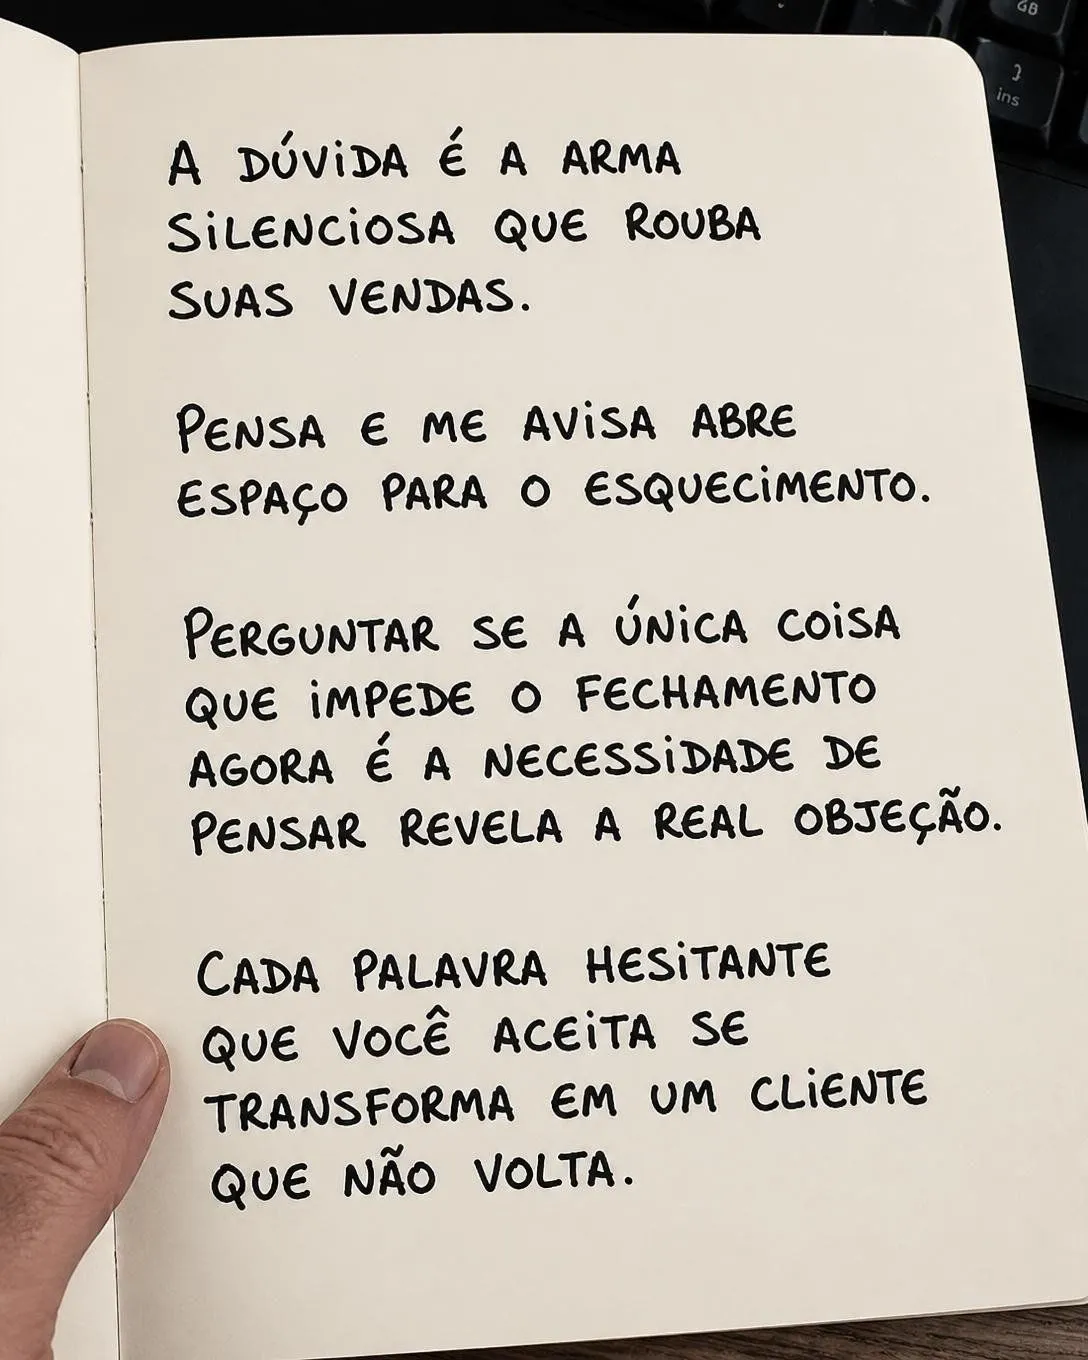 A DÚVIDA É A ARMA
SILENCIOSA QUE ROUBA
SUAS VENDAS.
PENSA E ME AVISA ABRE
ESPAÇO PARA O ESQUECIMENTO.
PERGUNTAR SE A ÚNICA COISA
QUE IMPEDE O FECHAMENTO
AGORA É A NECESSIDADE DE
PENSAR REVELA A REAL OBJEÇÃO.
CADA PALAVRA HESITANTE
QUE VOCÊ ACEITA SE
TRANSFORMA EM UM CLIENTE
QUE NÃO VOLTA.
ins